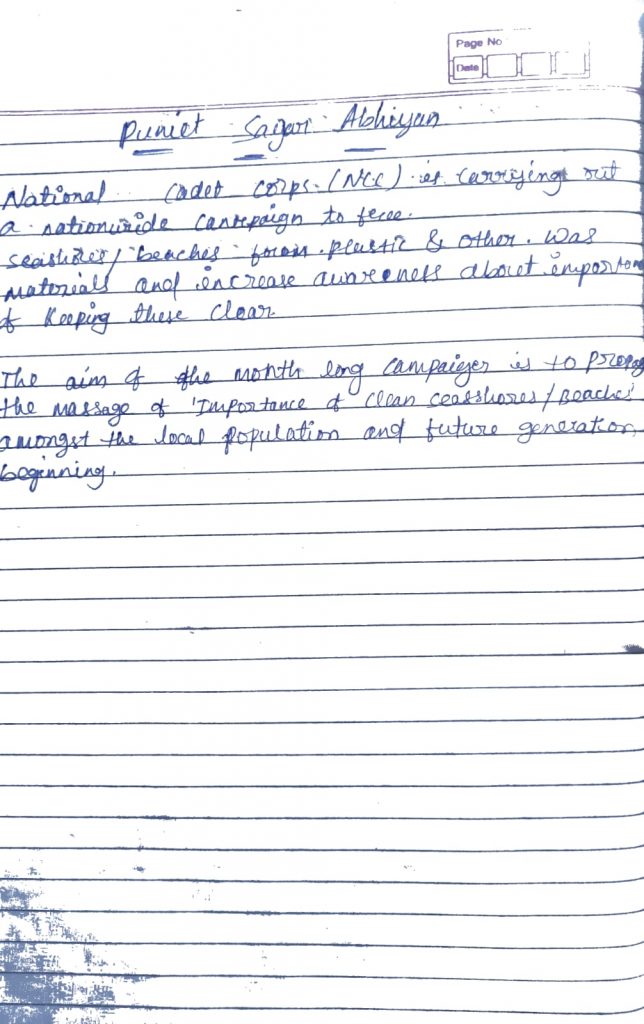 Page No
Date
Puniet Sagar Abhiyan
National Cadet Corps. (NCC) is carrying out
a nationwide campaign to free
seashores/beaches from plastic & other. Was
materials and increase awareness about importan
of keeping these clean.
The aim of the month long campaign is to propag
the massage of 'Importance of clean seasshores/Beaches'
amongst the local population and future generation
beginning.